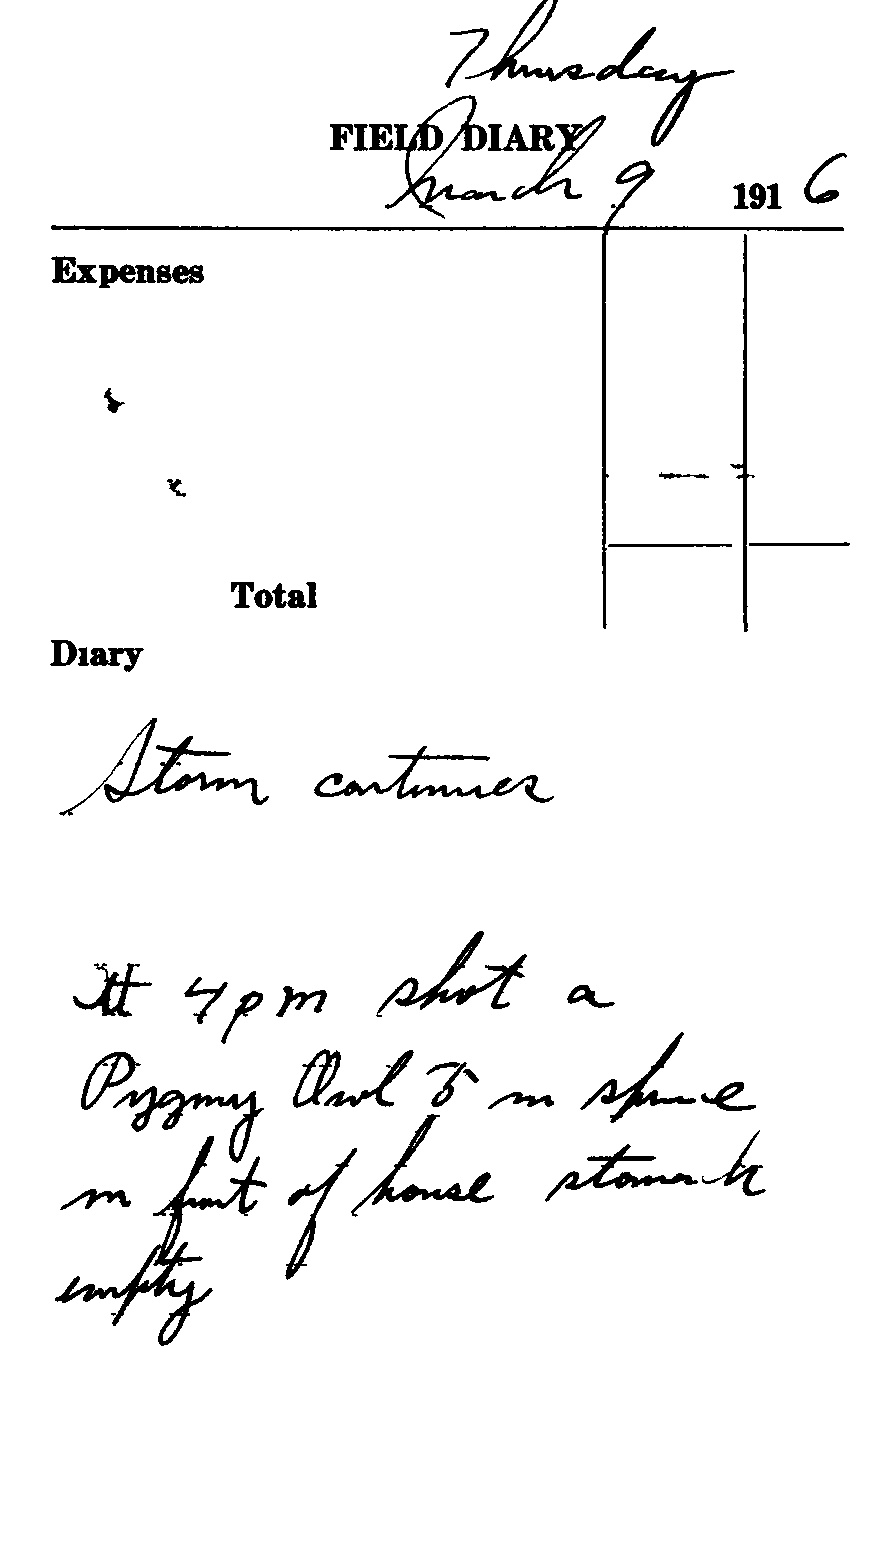 Thursday
FIELD DIARY
March 9 1916
Expenses
Total
Diary
Storm continues
At 4 pm shot a
Pygmy Owl ♂ in spruce
in front of house stomach
empty